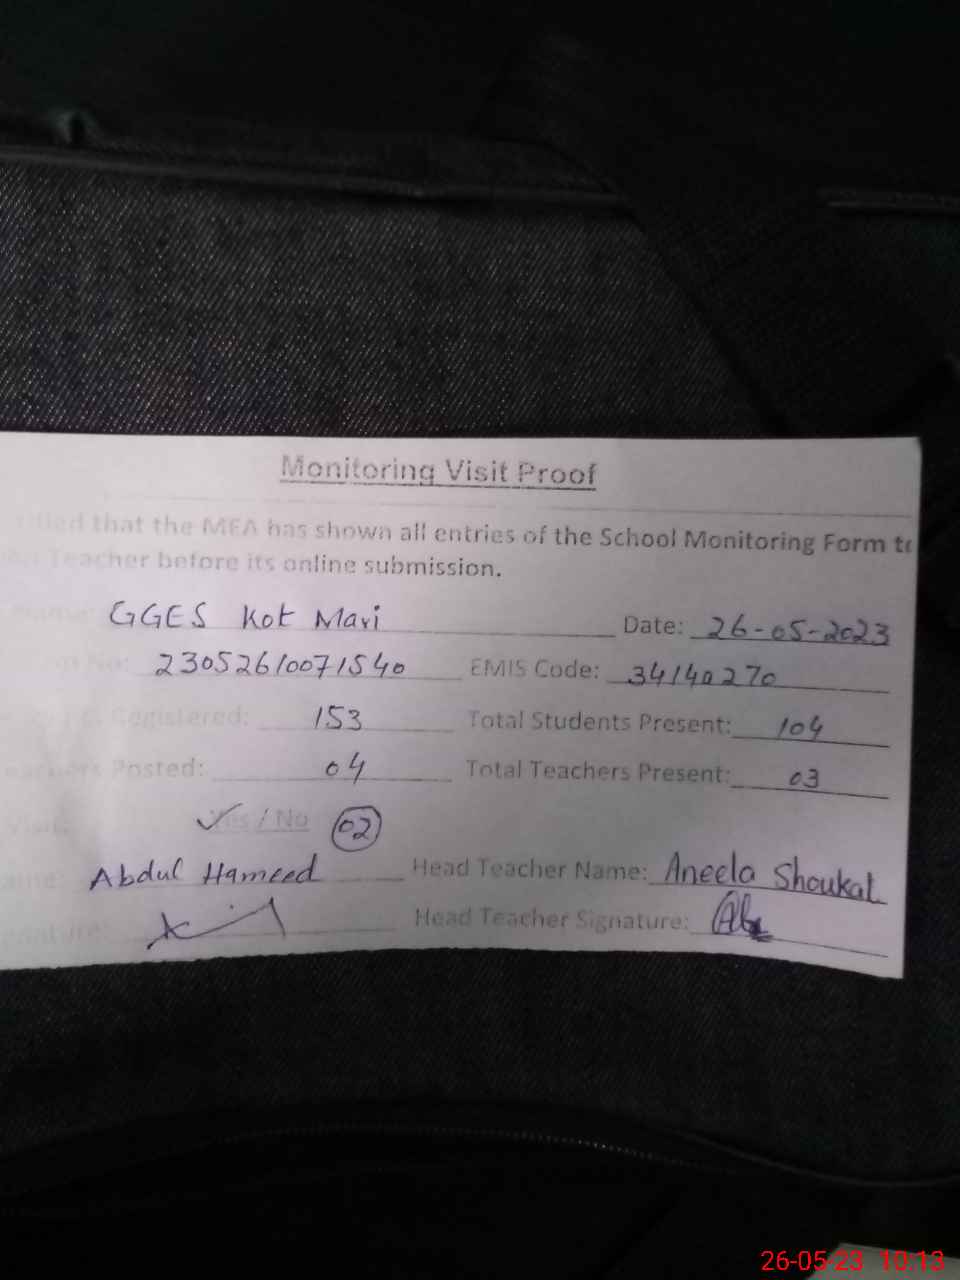 Monitoring Visit Proof
that the MEA has shown all entries of the School Monitoring Form to
Teacher before its online submission.
GGES Kot Mari Date: 26-05-2023
No: 23052610071540 EMIS Code: 34140270
Registered: 153 Total Students Present: 104
Posted: 04 Total Teachers Present: 03
Visit: Yes / No 02
Abdul Hameed Head Teacher Name: Aneela Shoukat
Head Teacher Signature:
26-05-23 10:13